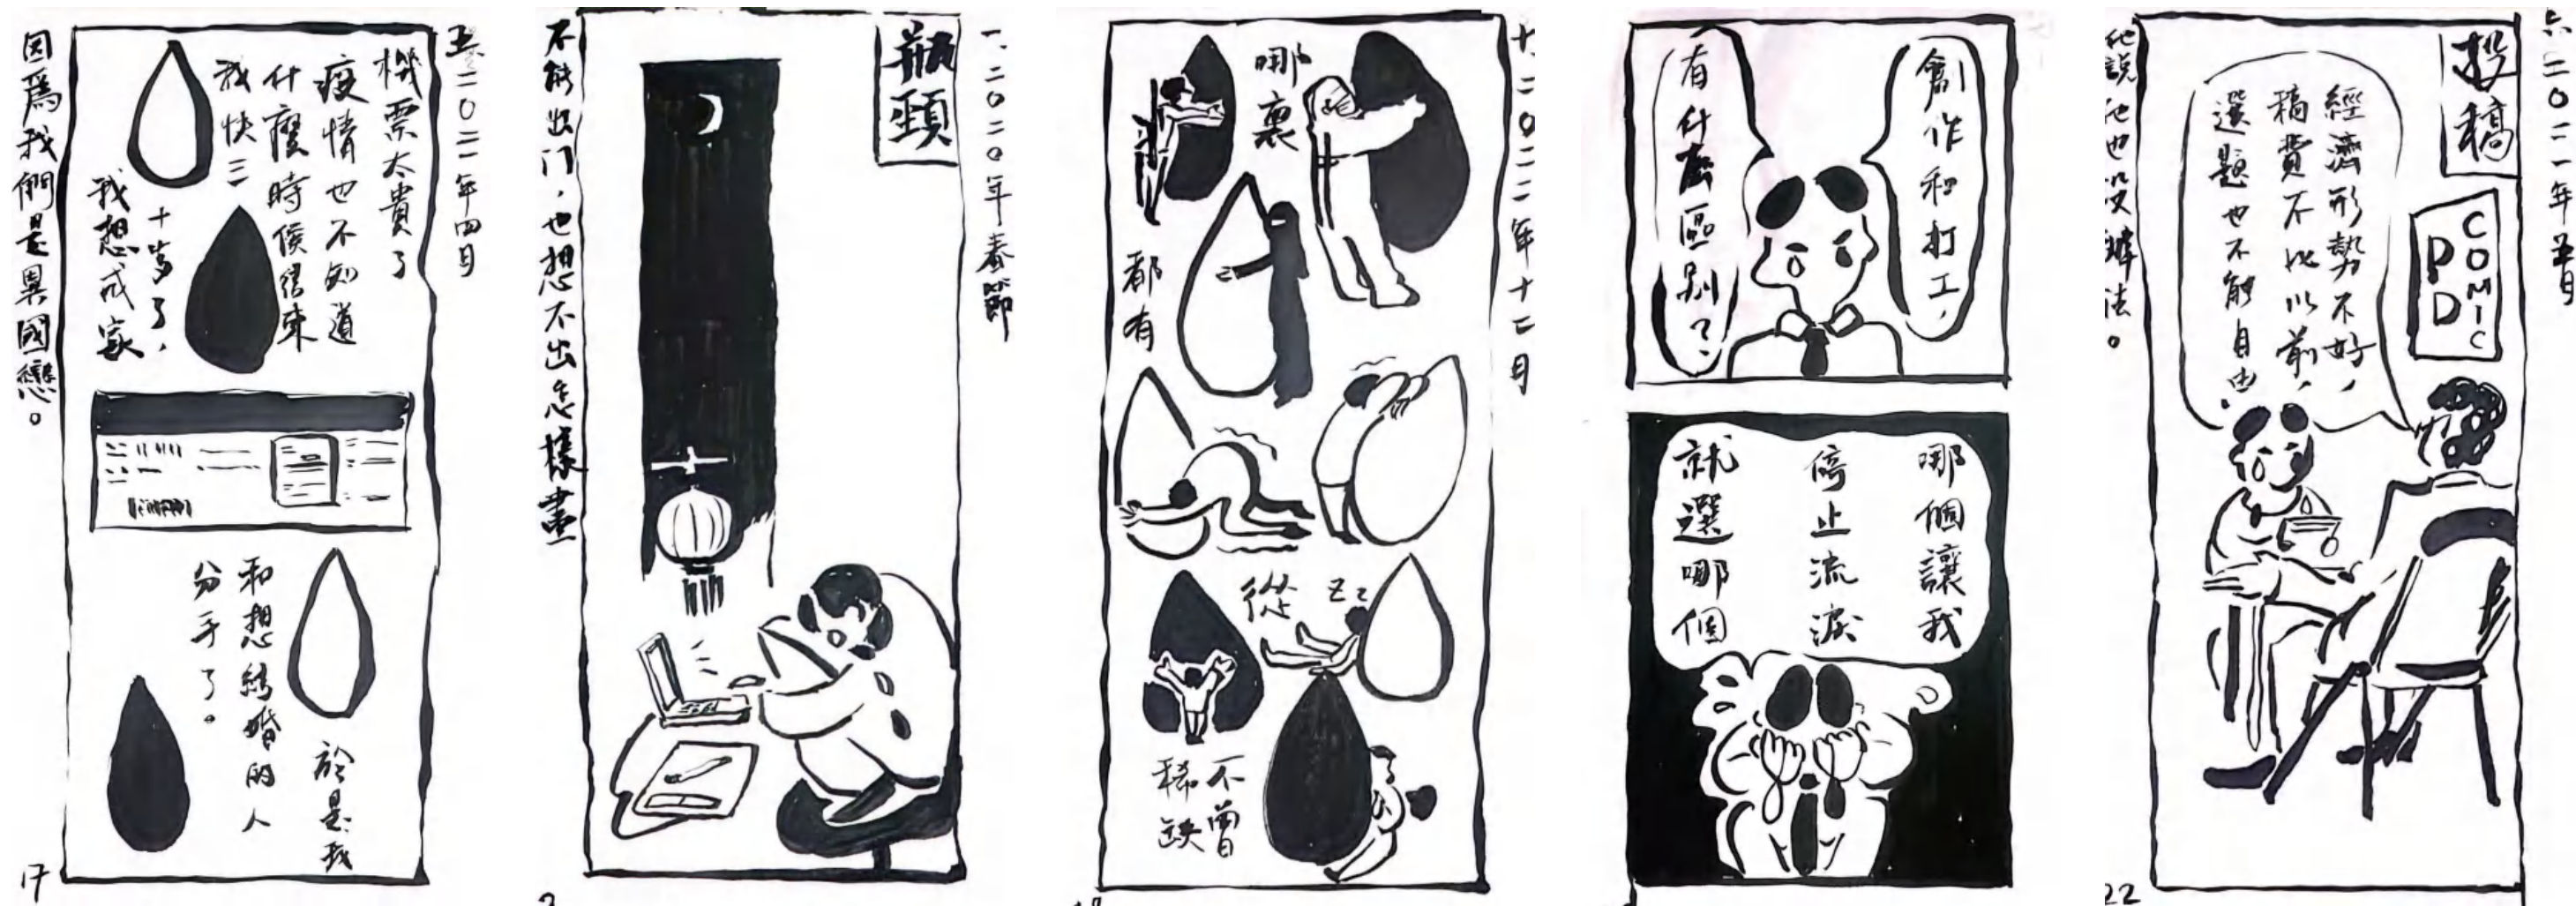 五、二〇二一年四月
機票太貴了
疫情也不知道
什麼時侯結束
我快三
十歲了，
我想成家
於是我
和想結婚的人
分手了。
因爲我們是異國戀。
17
一、二〇二〇年春節
瓶頸
不能出门，也想不出怎樣畫
2
十、二〇二二年十二月
哪裏
都有
從
zz
不曾
稀缺
創作和打工，
有什麽區别？
哪個讓我
停止流淚
就選哪個
六、二〇二一年五月
投稿
COMIC
PDD
經濟形勢不好，
稿費不比以前，
選題也不能自由。
他說他也没辦法。
22